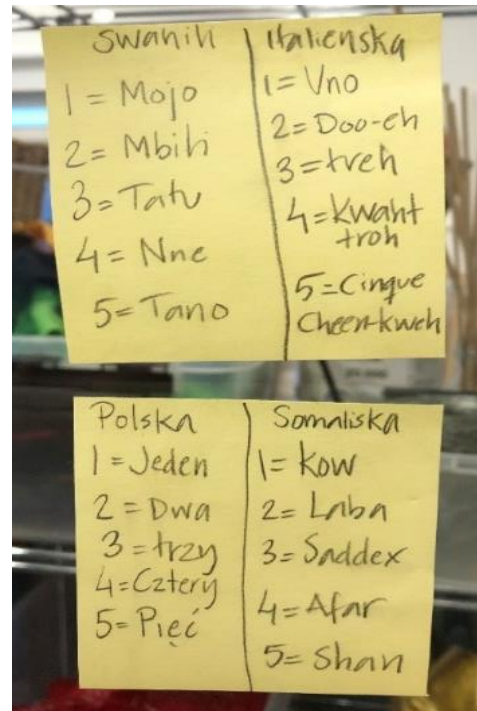 Swahili
1 = Mojo
2 = Mbili
3 = Tatu
4 = Nne
5 = Tano
Italienska
1 = Uno
2 = Doo-eh
3 = treh
4 = Kwaht
troh
5 = Cinque
Cheen-kweh
Polska
1 = Jeden
2 = Dwa
3 = trzy
4 = Cztery
5 = Pięć
Somaliska
1 = Kow
2 = Laba
3 = Saddex
4 = Afar
5 = Shan